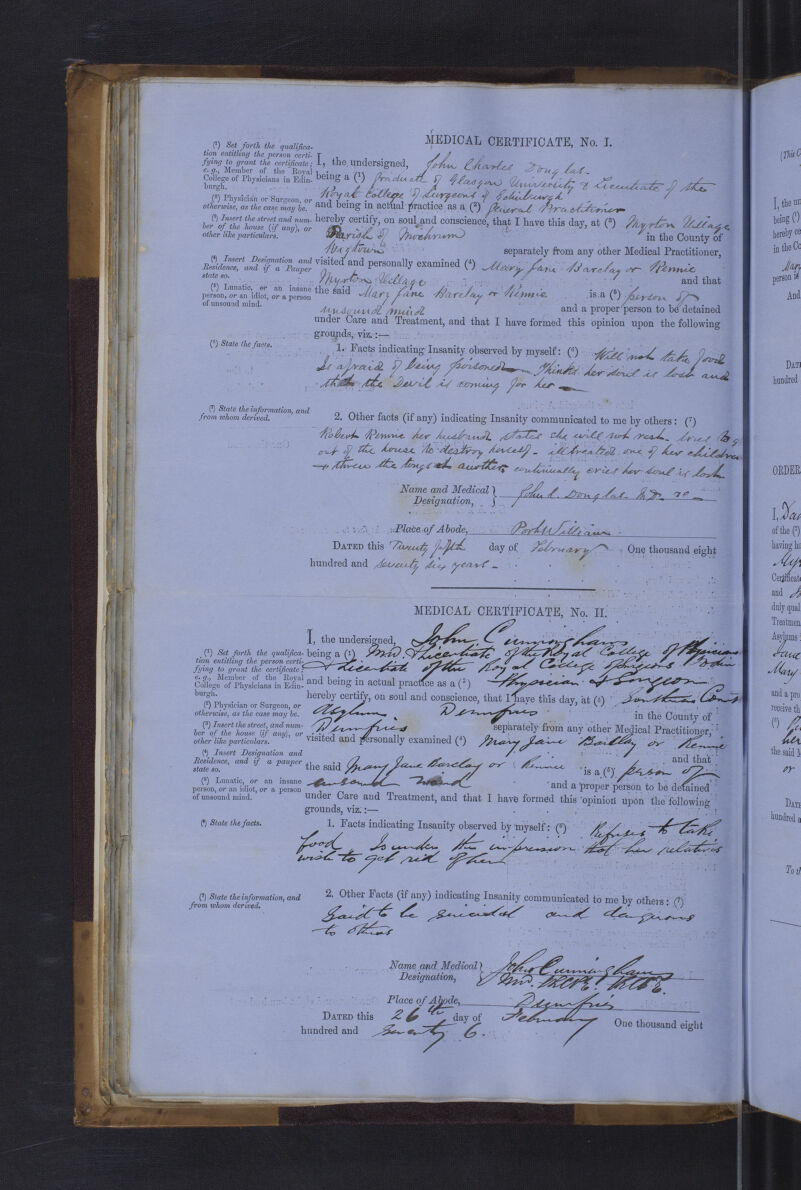 MEDICAL CERTIFICATE, No. I.
(¹) Set forth the qualifica-
tion entitling the person certi-
fying to grant the certificate;
e.g., Member of the Royal
College of Physicians in Edin-
burgh.
(²) Physician or Surgeon, or
otherwise, as the case may be.
(³) Insert the street and num-
ber of the house (if any), or
other like particulars.
(⁴) Insert Designation and
Residence, and if a Pauper
state so.
(⁵) Lunatic, or an insane
person, or an idiot, or a person
of unsound mind.
(⁶) State the facts.
(⁷) State the information, and
from whom derived.
I, the undersigned, John Charles Douglas-
being a (¹) Graduate of Glasgow University & Licentiate of the
Royal College of Surgeons of Edinburgh
and being in actual practice as a (²) General Practitioner
hereby certify, on soul and conscience, that I have this day, at (³) Myrton Village
Parish of Mochrum in the County of
Wigtown separately from any other Medical Practitioner,
visited and personally examined (⁴) Mary Jane Barclay or Rennie
Myrton Village and that
the said Mary Jane Barclay or Rennie is a (⁵) person of
unsound mind and a proper person to be detained
under Care and Treatment, and that I have formed this opinion upon the following
grounds, viz.:—
1. Facts indicating Insanity observed by myself: (⁶) Will not take food
Is afraid of being poisoned - Thinks her soul is lost and
that the Devil is coming for her -
2. Other facts (if any) indicating Insanity communicated to me by others: (⁷)
Robert Rennie her husband states she will not rest - tries to
out of the house to destroy herself - illtreated one of her children
threw the tongs at another, continually cries her soul is lost
Name and Medical Designation, John C. Douglas M.D.
Place of Abode, Port William.
DATED this Twenty fifth day of February One thousand eight
hundred and seventy six years -
MEDICAL CERTIFICATE, No. II.
(¹) Set forth the qualifica-
tion entitling the person certi-
fying to grant the certificate;
e.g., Member of the Royal
College of Physicians in Edin-
burgh.
(²) Physician or Surgeon, or
otherwise, as the case may be.
(³) Insert the street, and num-
ber of the house (if any), or
other like particulars.
(⁴) Insert Designation and
Residence, and if a pauper
state so.
(⁵) Lunatic, or an insane
person, or an idiot, or a person
of unsound mind.
(⁶) State the facts.
(⁷) State the information, and
from whom derived.
I, the undersigned, John Cunningham
being a (¹) M.D. & Licentiate of the Royal College of Physicians
& Licentiate of the Royal College of Surgeons Edin
and being in actual practice as a (²) Physician & Surgeon
hereby certify, on soul and conscience, that I have this day, at (³) Southern Counties
Asylum Dumfries in the County of
Dumfries separately from any other Medical Practitioner,
visited and personally examined (⁴) Mary Jane Barclay or Rennie
and that
the said Mary Jane Barclay or Rennie is a (⁵) person of
unsound mind and a proper person to be detained
under Care and Treatment, and that I have formed this opinion upon the following
grounds, viz.:—
1. Facts indicating Insanity observed by myself: (⁶) Refuses to take
food. Is under the impression that her relatives
wish to get rid of her.
2. Other Facts (if any) indicating Insanity communicated to me by others: (⁷)
Said to be suicidal and dangerous
to others
Name and Medical Designation, John Cunningham
M.D.
Place of Abode, Dumfries
DATED this 26th day of February One thousand eight
hundred and seventy 6.